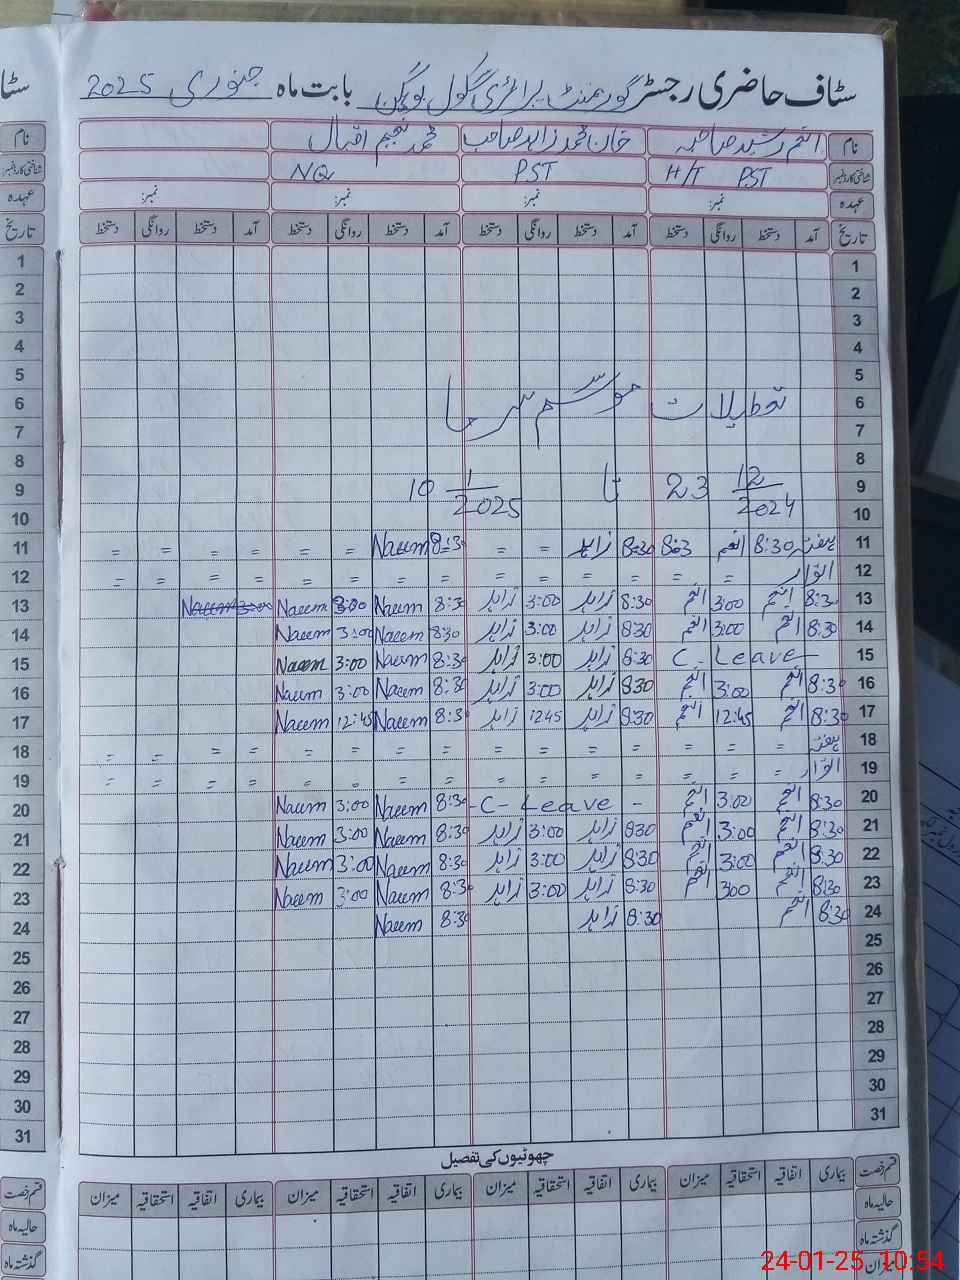 سٹاف حاضری رجسٹر گورنمنٹ پرائمری سکول بابت ماہ جنوری 2025
نام انعم رشید صاحبہ خان محمد زاہد صاحب محمد نعیم اقبال
شناختی کارڈ نمبر H/T PST PST NQ
عہدہ نمبر: نمبر: نمبر: نمبر:
تاریخ آمد دستخط روانگی دستخط آمد دستخط روانگی دستخط آمد دستخط روانگی دستخط آمد دستخط روانگی دستخط
1
2
3
4
5
6 تعطیلات موسم سرما
7
8
9 23 12/2024 تا 10 1/2025
10
11 ہفتہ 8:30 انعم 8:3 8:30 زاہد = = 8:30 Naeem = = = = = =
12 اتوار = = = = = = = = = = = = =
13 8:30 انعم 3:00 انعم 8:30 زاہد 3:00 زاہد 8:30 Naeem 3:00 Naeem 3:00 Naeem
14 8:30 انعم 3:00 انعم 8:30 زاہد 3:00 زاہد 8:30 Naeem 3:00 Naeem
15 C. Leave 8:30 زاہد 3:00 زاہد 8:30 Naeem 3:00 Naeem
16 8:30 انعم 3:00 انعم 8:30 زاہد 3:00 زاہد 8:30 Naeem 3:00 Naeem
17 8:30 انعم 12:45 انعم 8:30 زاہد 12:45 زاہد 8:30 Naeem 12:45 Naeem
18 ہفتہ = = = = = = = = = = = = = = =
19 اتوار = = = = = = = = = = = = = = =
20 8:30 انعم 3:00 انعم - C- Leave - 8:30 Naeem 3:00 Naeem
21 8:30 انعم 3:00 انعم 8:30 زاہد 3:00 زاہد 8:30 Naeem 3:00 Naeem
22 8:30 انعم 3:00 انعم 8:30 زاہد 3:00 زاہد 8:30 Naeem 3:00 Naeem
23 8:30 انعم 300 انعم 8:30 زاہد 3:00 زاہد 8:30 Naeem 3:00 Naeem
24 8:30 انعم 8:30 زاہد 8:30 Naeem
25
26
27
28
29
30
31
چھوٹیوں کی تفصیل
قسم رخصت بیماری اتفاقیہ استحقاقیہ میزان بیماری اتفاقیہ استحقاقیہ میزان بیماری اتفاقیہ استحقاقیہ میزان بیماری اتفاقیہ استحقاقیہ میزان
حالیہ ماہ
گذشتہ ماہ
میزان
سٹا
نام
شناختی کارڈ نمبر
عہدہ
تاریخ
1
2
3
4
5
6
7
8
9
10
11
12
13
14
15
16
17
18
19
20
21
22
23
24
25
26
27
28
29
30
31
قسم رخصت
حالیہ ماہ
گذشتہ ماہ
24-01-25 10:54